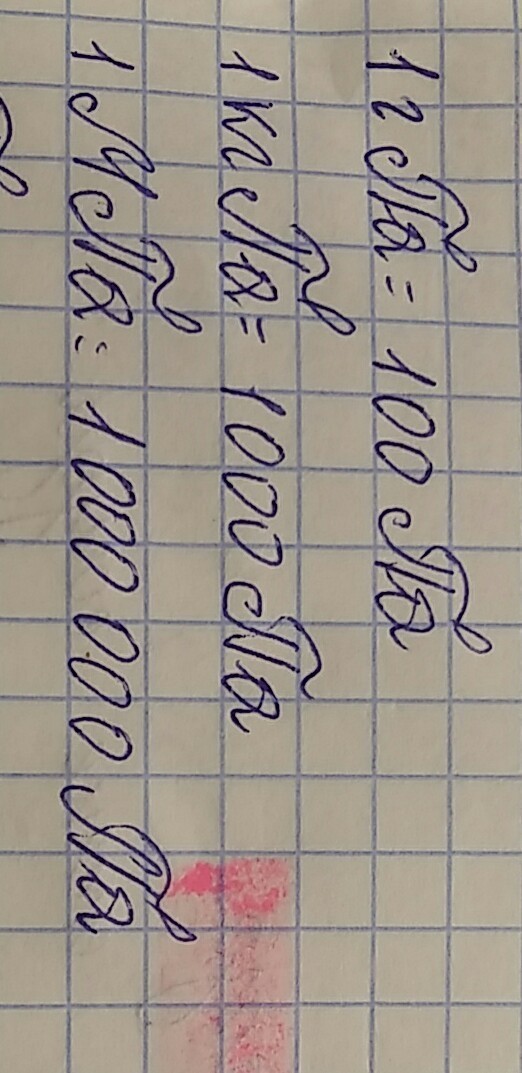 1 гПа = 100 Па
1 кгПа = 1000 Па
1 МПа = 1 000 000 Па